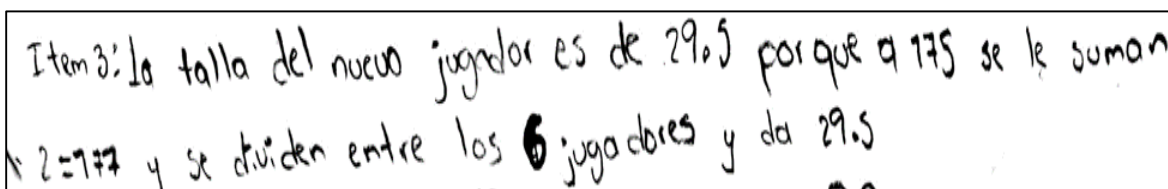 Item 3: la talla del nuevo jugador es de 29.5 porque a 175 se le suman
2=177 y se dividen entre los 6 jugadores y da 29.5